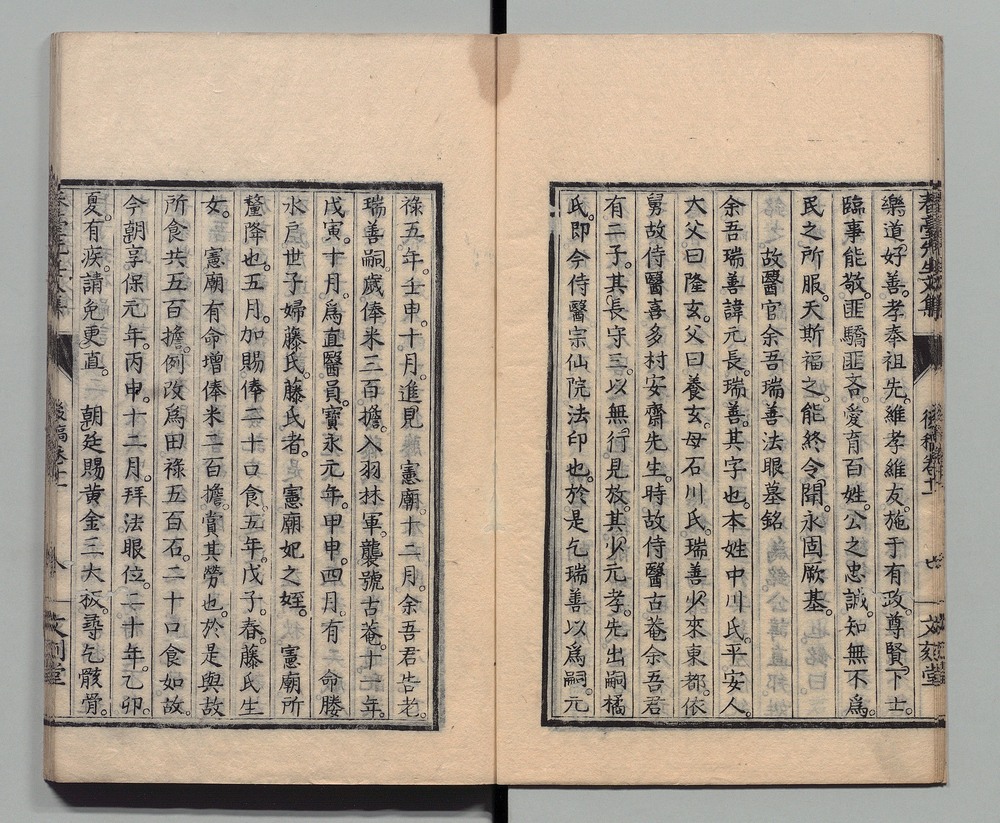 樂道好善。孝奉祖先。維孝維友。施于有政。尊賢下士。
臨事能敬。匪驕匪吝。愛育百姓。公之忠誠。知無不爲。
民之所服。天斯福之。能終令聞。永固厥基。
故醫官余吾瑞善法眼墓銘
余吾瑞善諱元長。瑞善。其字也。本姓中川氏。平安人。
大父曰隆玄。父曰養玄。母石川氏。瑞善少來東都。依
舅故侍醫喜多村安齋先生。時故侍醫古菴余吾君
有二子。其長守三。以無行見放。其少元孝。先出嗣橘
氏。即今侍醫宗仙院法印也。於是乞瑞善以爲嗣。元
祿五年。壬申。十月。進見 憲廟。十二月。余吾君告老。
瑞善嗣。歲俸米三百擔。入羽林軍。襲號古菴。十一年。
戊寅。十月。爲直醫員。寶永元年。甲申。四月。有 命媵
水戶世子婦藤氏。藤氏者。 憲廟妃之姪。 憲廟所
釐降也。五月。加賜俸二十口食。五年。戊子。春。藤氏生
女。 憲廟有命增俸米二百擔。賞其勞也。於是與故
所食共五百擔。例改爲田祿五百石。二十口食如故。
今朝享保元年。丙申。十二月。拜法眼位。二十年。乙卯。
夏。有疾。請免更直。 朝廷賜黃金三大板。尋乞骸骨。
後稿卷十一
八
文刻堂